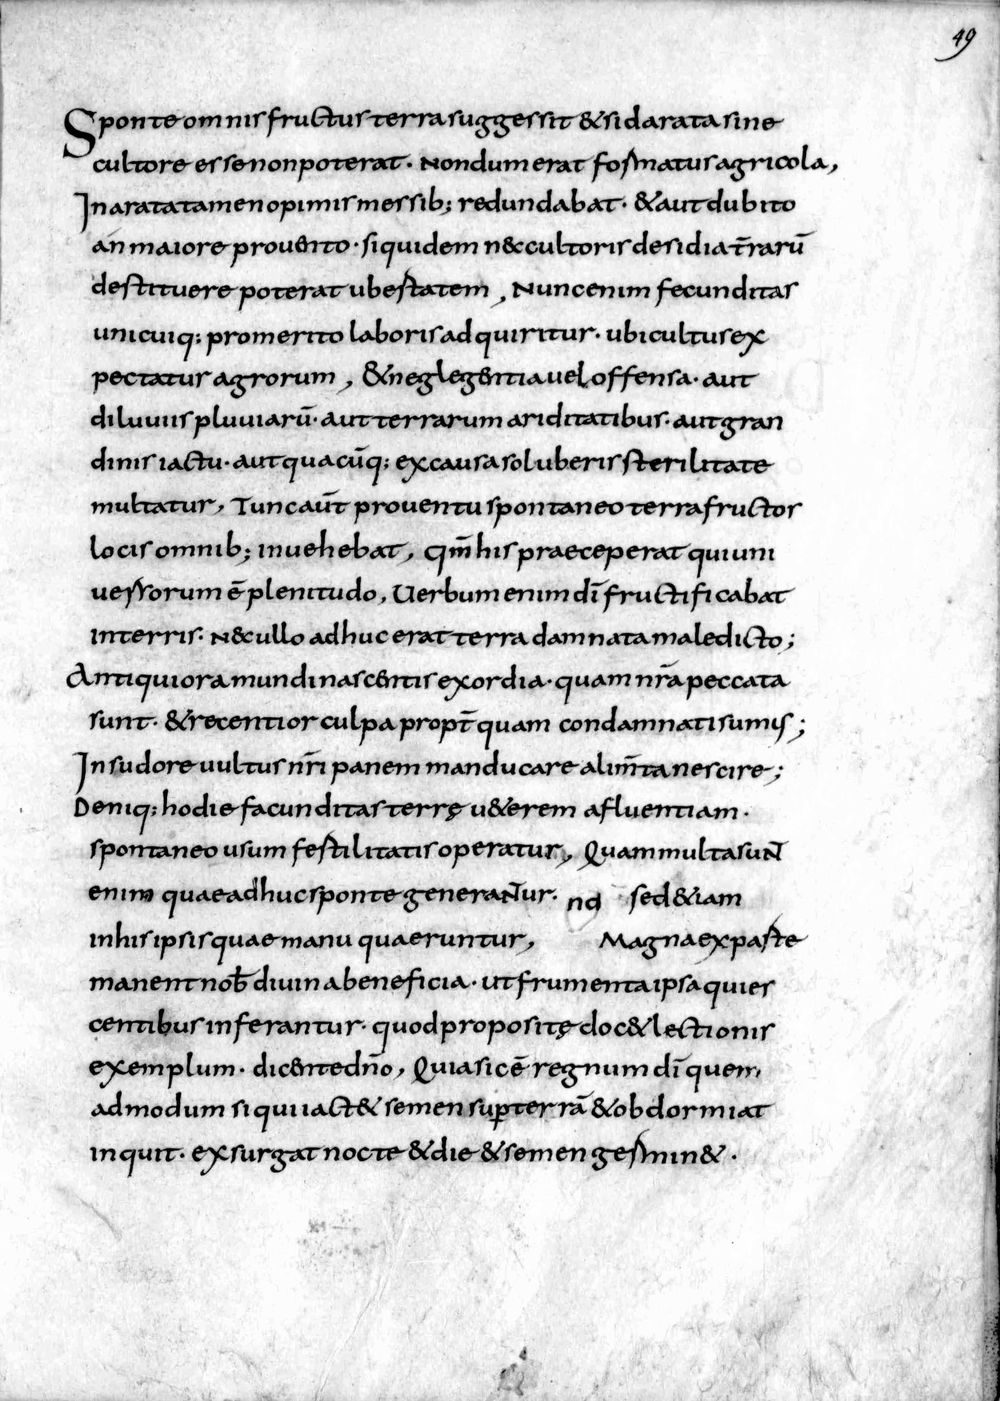 49
Sponte omnis fructus terra suggessit & si darata sine
cultore esse non poterat· Nondum erat formatus agricola,
Inarata tamen opimis messib; redundabat· & aut dubito
an maiore prouentu· siquidem n& cultoris desidia t̄rarū
destituere poterat ubertatem, Nunc enim fecunditas
unicuiq; pro merito laboris adquiritur· ubi cultus ex
pectatur agrorum, & neglegentia uel offensa· aut
diluuiis pluuiarū· aut terrarum ariditatibus· aut gran
dinis iactu· aut quacūq; ex causa sol uberis sterilitate
multatur, Tunc aūt prouentu spontaneo terra fructor
locis omnib; inuehebat, qm̄ his praeceperat qui uni
uersorum ē plenitudo, Uerbum enim dī fructificabat
in terris· N& ullo adhuc erat terra damnata maledicto;
Antiquiora mundi nascentis exordia· quam nr̄a peccata
sunt· & recentior culpa propt̄ quam condamnati sumus;
In sudore uultus nr̄i panem manducare alim̄ta nescire;
Deniq; hodie facunditas terrę u&erem afluentiam·
spontaneo usum fertilitatis operatur, Quam multa suNt
enim quae adhuc sponte generaNtur· nd sed &iam
in his ipsis quae manu quaeruntur, Magna ex parte
manent nob̄ diuina beneficia· ut frumenta ipsa quies
centibus inferantur· quod propositę doc& lectionis
exemplum· dicente dn̄o, Quia sic ē regnum dī quem
admodum si qui iact& semen sup̄ terrā & obdormiat
inquit· exsurgat nocte & die & semen germin&·